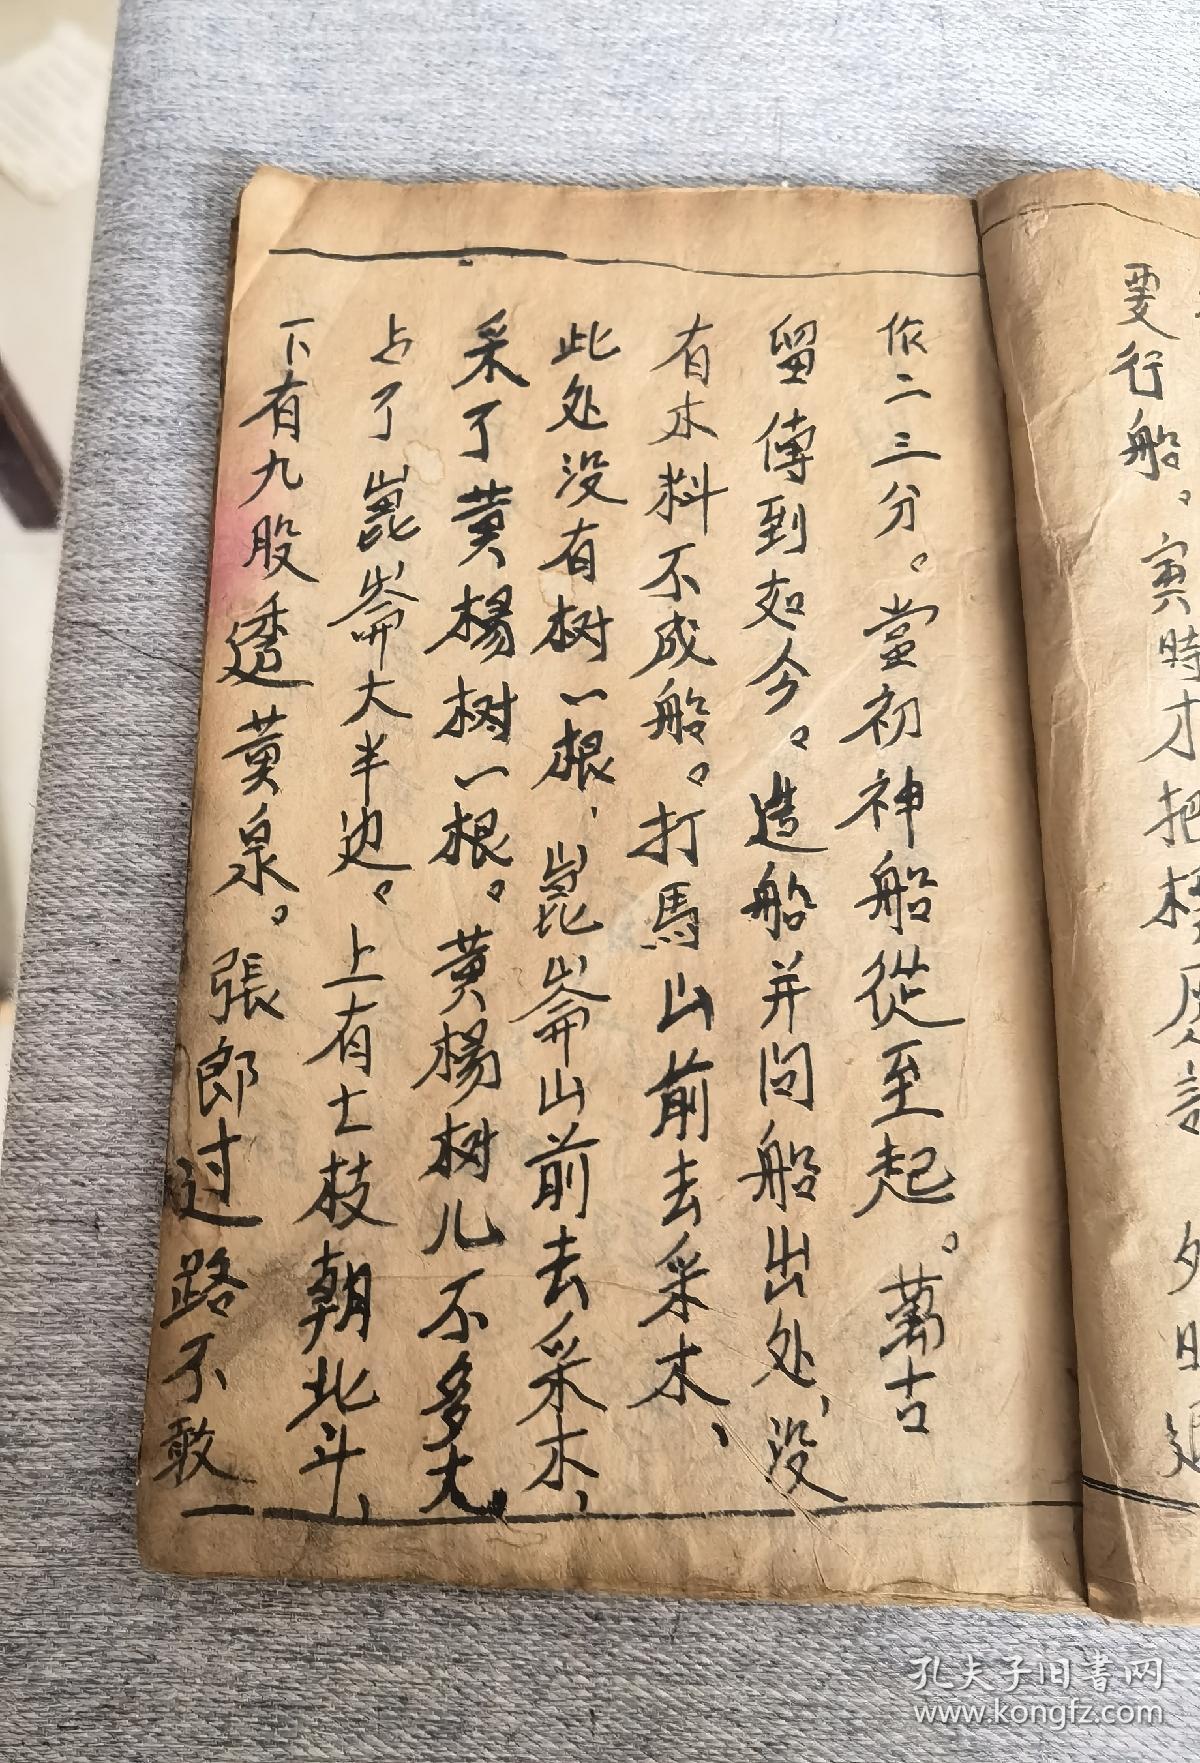 要行船。寅時才把
依二三分。當初神船從至起。萬古
留傳到如今。造船并问船出处，没
有木料不成船。打馬山前去采木，
此处没有树一根，崑崙山前去采木，
采了黄楊树一根。黄楊树儿不多大，
占了崑崙大半边。上有士枝朝北斗，
下有九股透黄泉。張郎过路不敢
孔夫子旧书网
www.kongfz.com